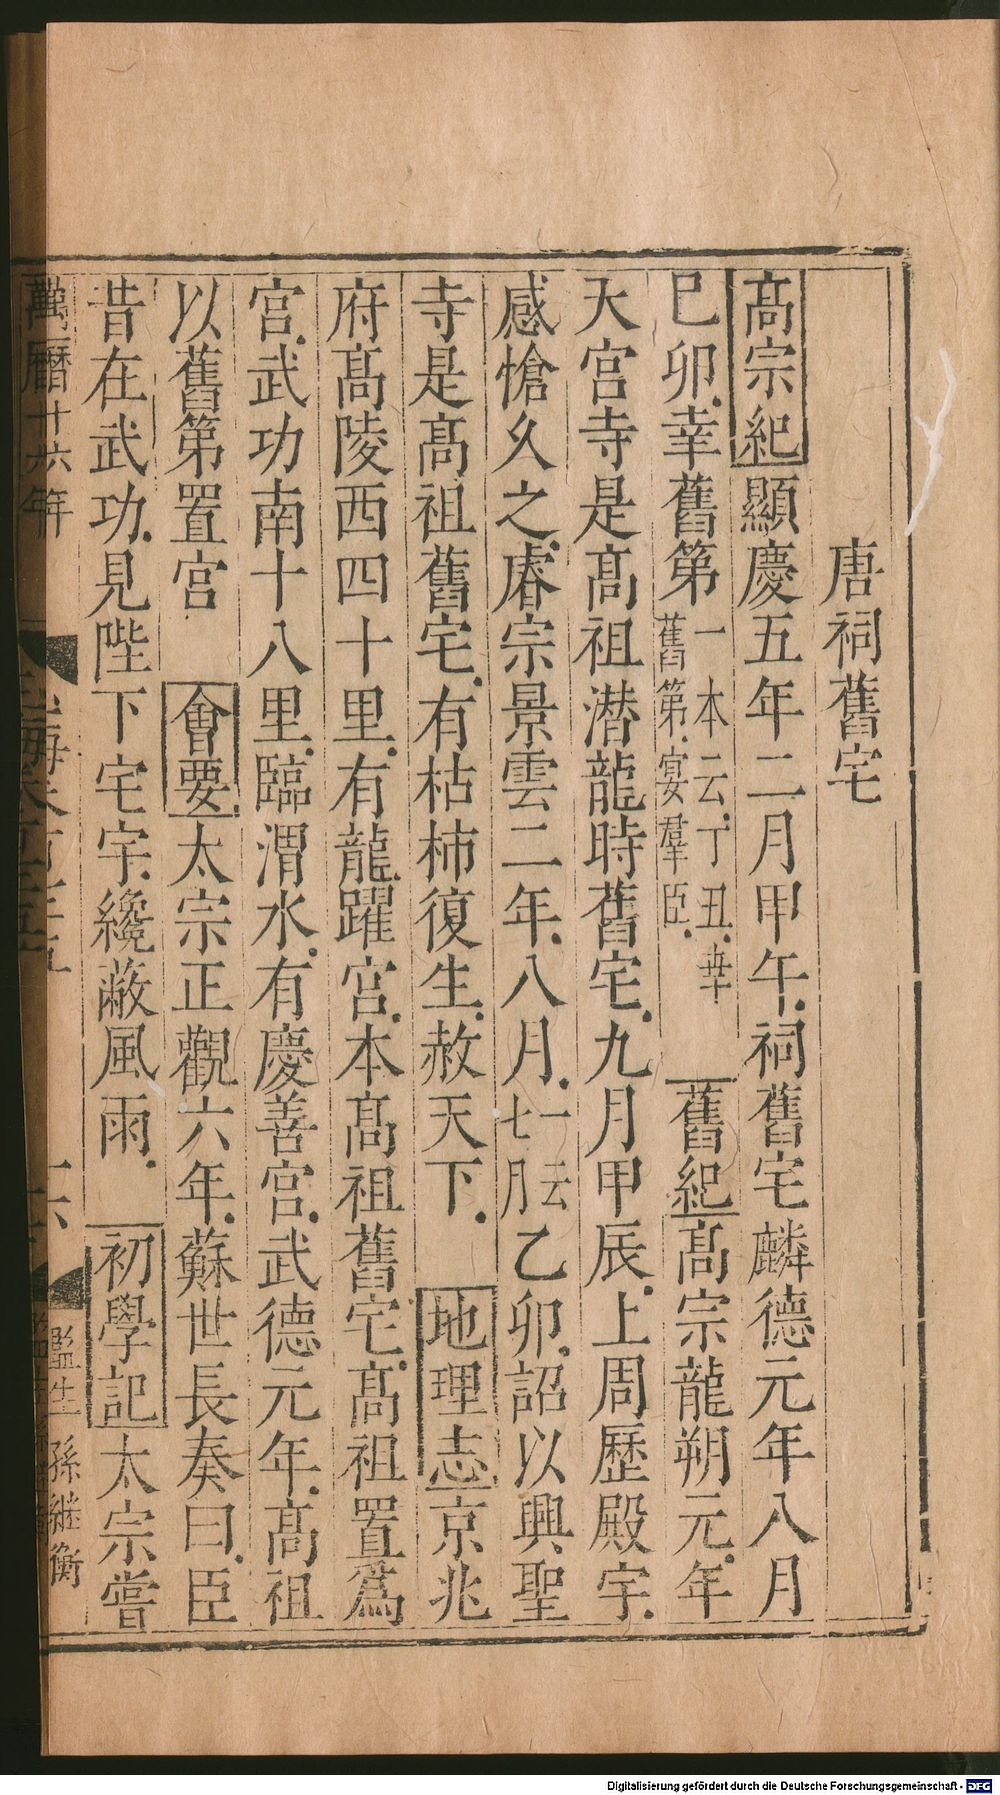 唐祠舊宅
高宗紀顯慶五年二月甲午祠舊宅麟德元年八月
己卯幸舊第一本云丁丑幸舊第宴羣臣舊紀高宗龍朔元年
天宮寺是高祖潛龍時舊宅九月甲辰上周歷殿宇
感愴久之睿宗景雲二年八月一云七月乙卯詔以興聖
寺是高祖舊宅有枯柿復生赦天下地理志京兆
府高陵西四十里有龍躍宮本高祖舊宅高祖置爲
宮武功南十八里臨渭水有慶善宮武德元年高祖
以舊第置宮會要太宗正觀六年蘇世長奏曰臣
昔在武功見陛下宅宇纔蔽風雨初學記太宗嘗
萬曆十六年
監生孫継衡
Digitalisierung gefördert durch die Deutsche Forschungsgemeinschaft - DFG